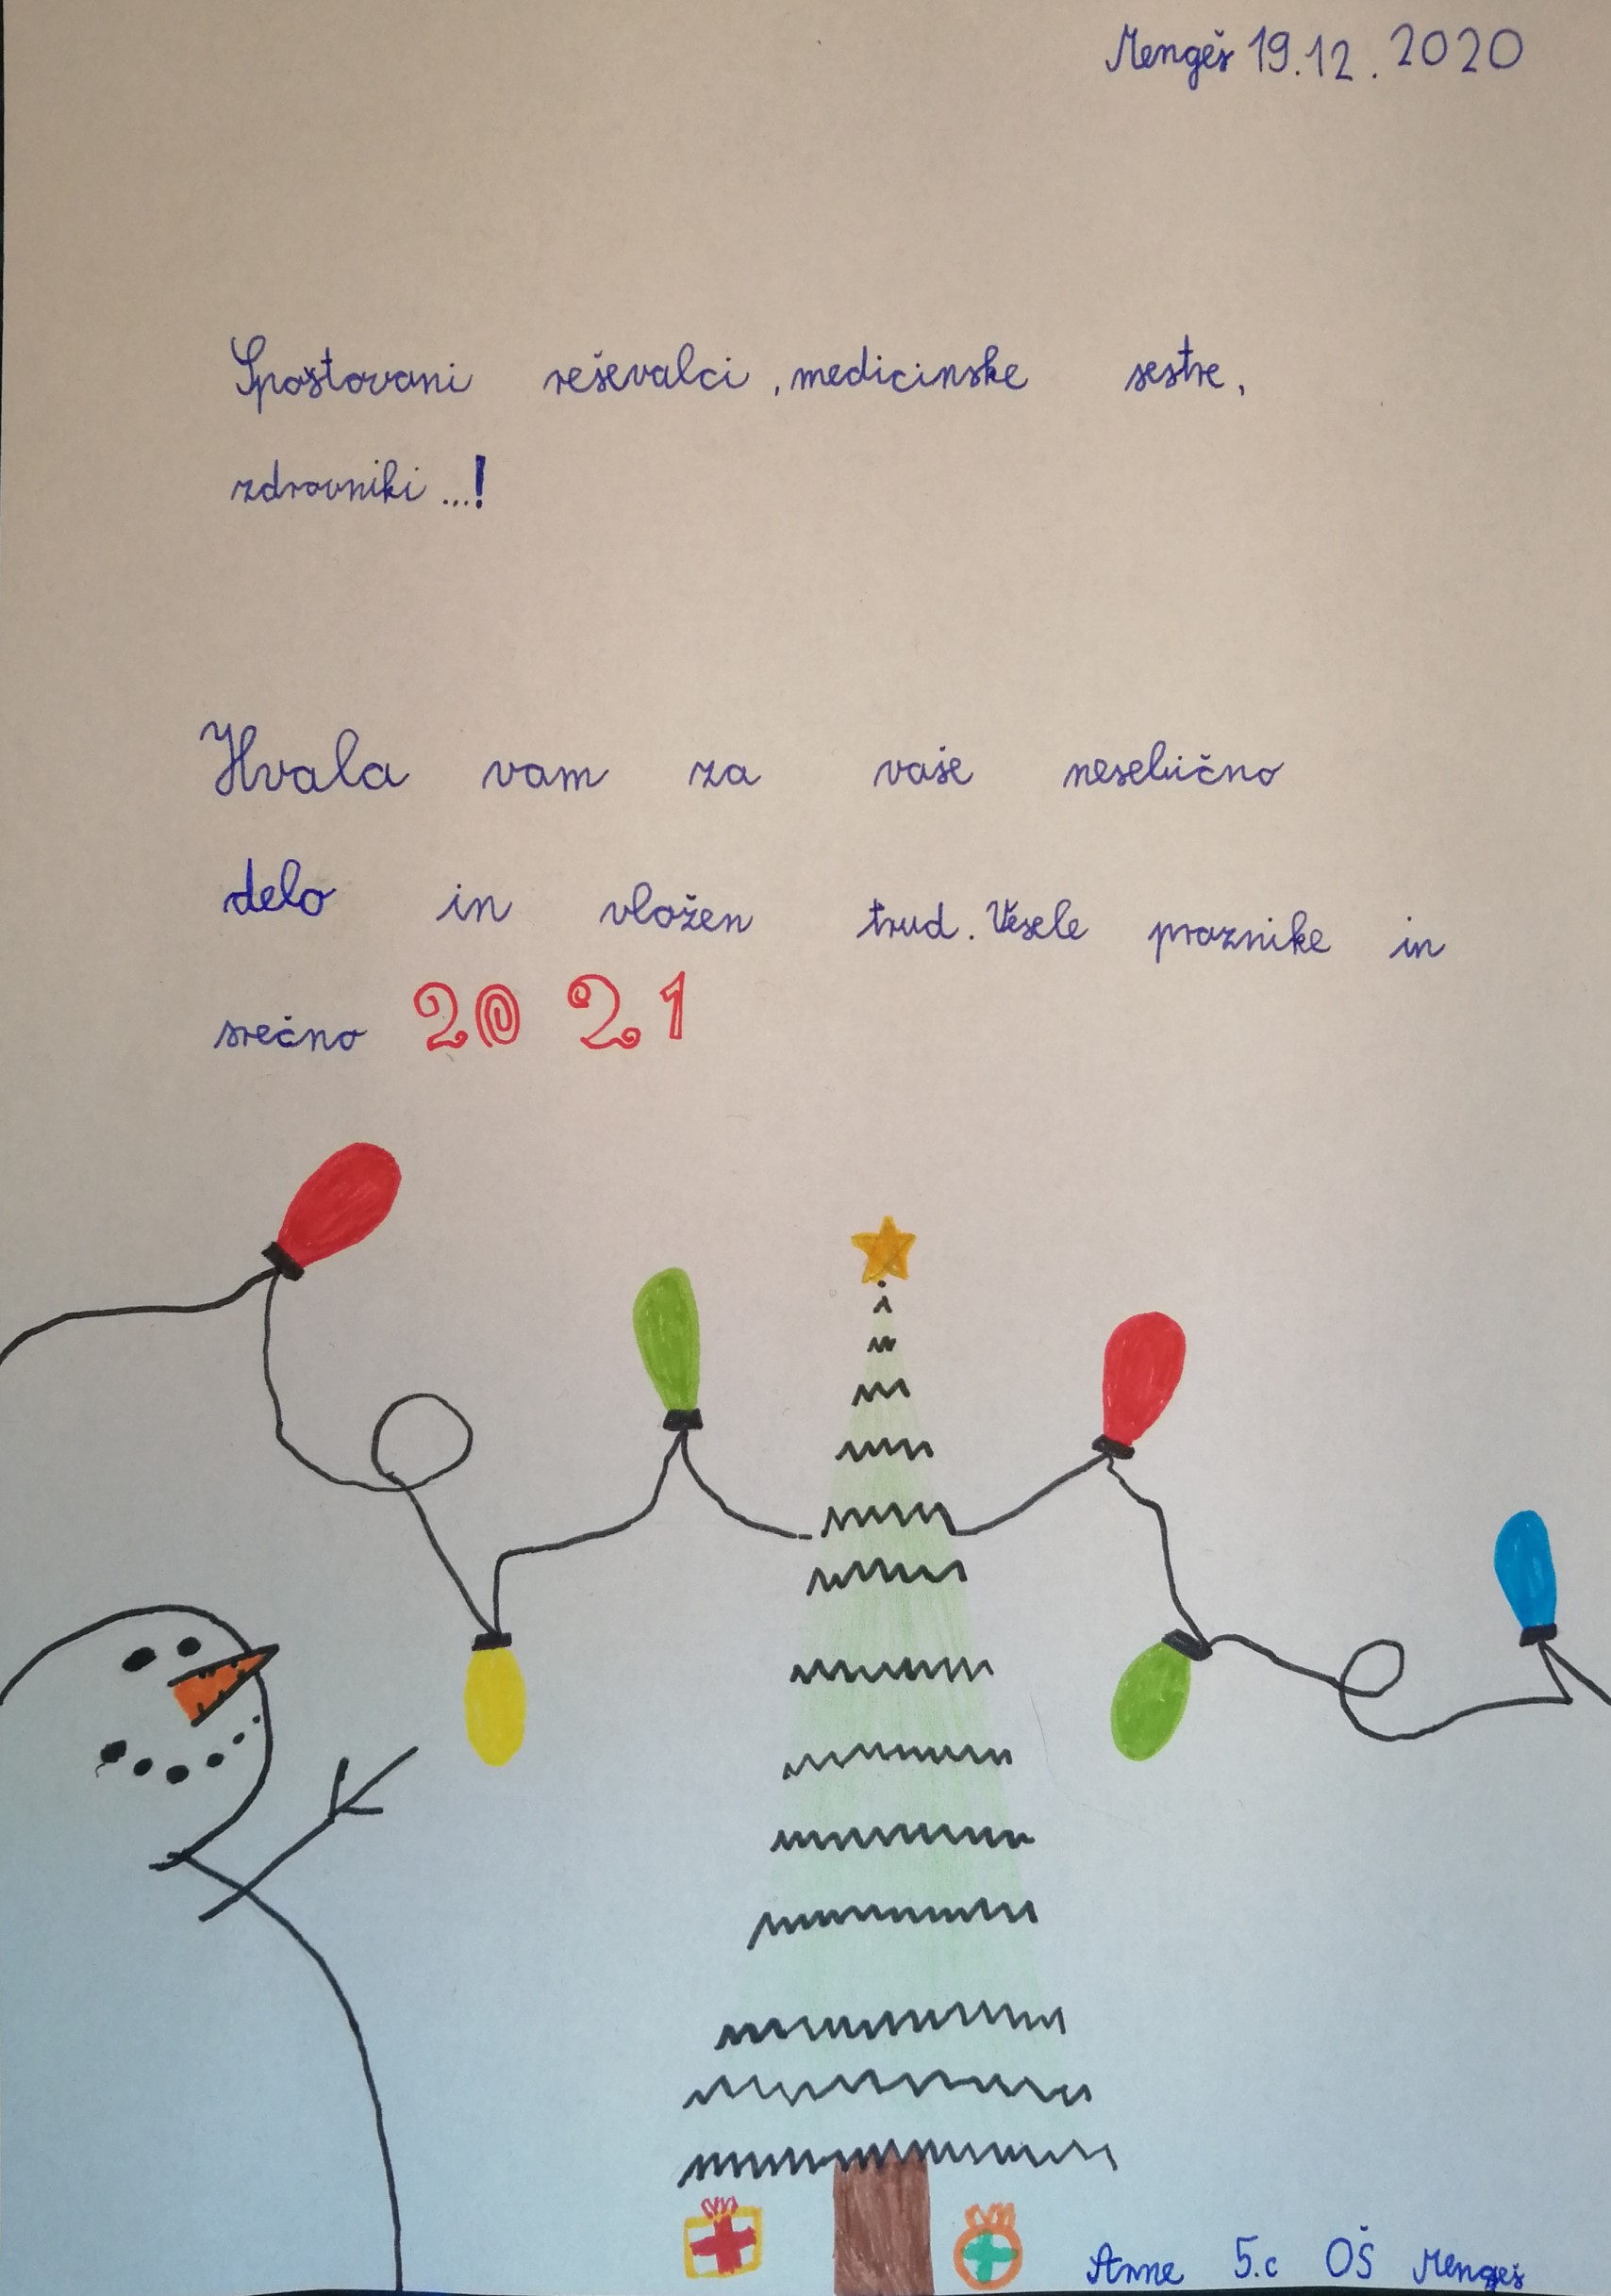 Mengeš 19.12.2020
Spoštovani reševalci, medicinske sestre,
zdravniki...!
Hvala vam za vaše nesebično
delo in vložen trud. Vesele praznike in
srečno 2021
Anne 5.c OŠ Mengeš